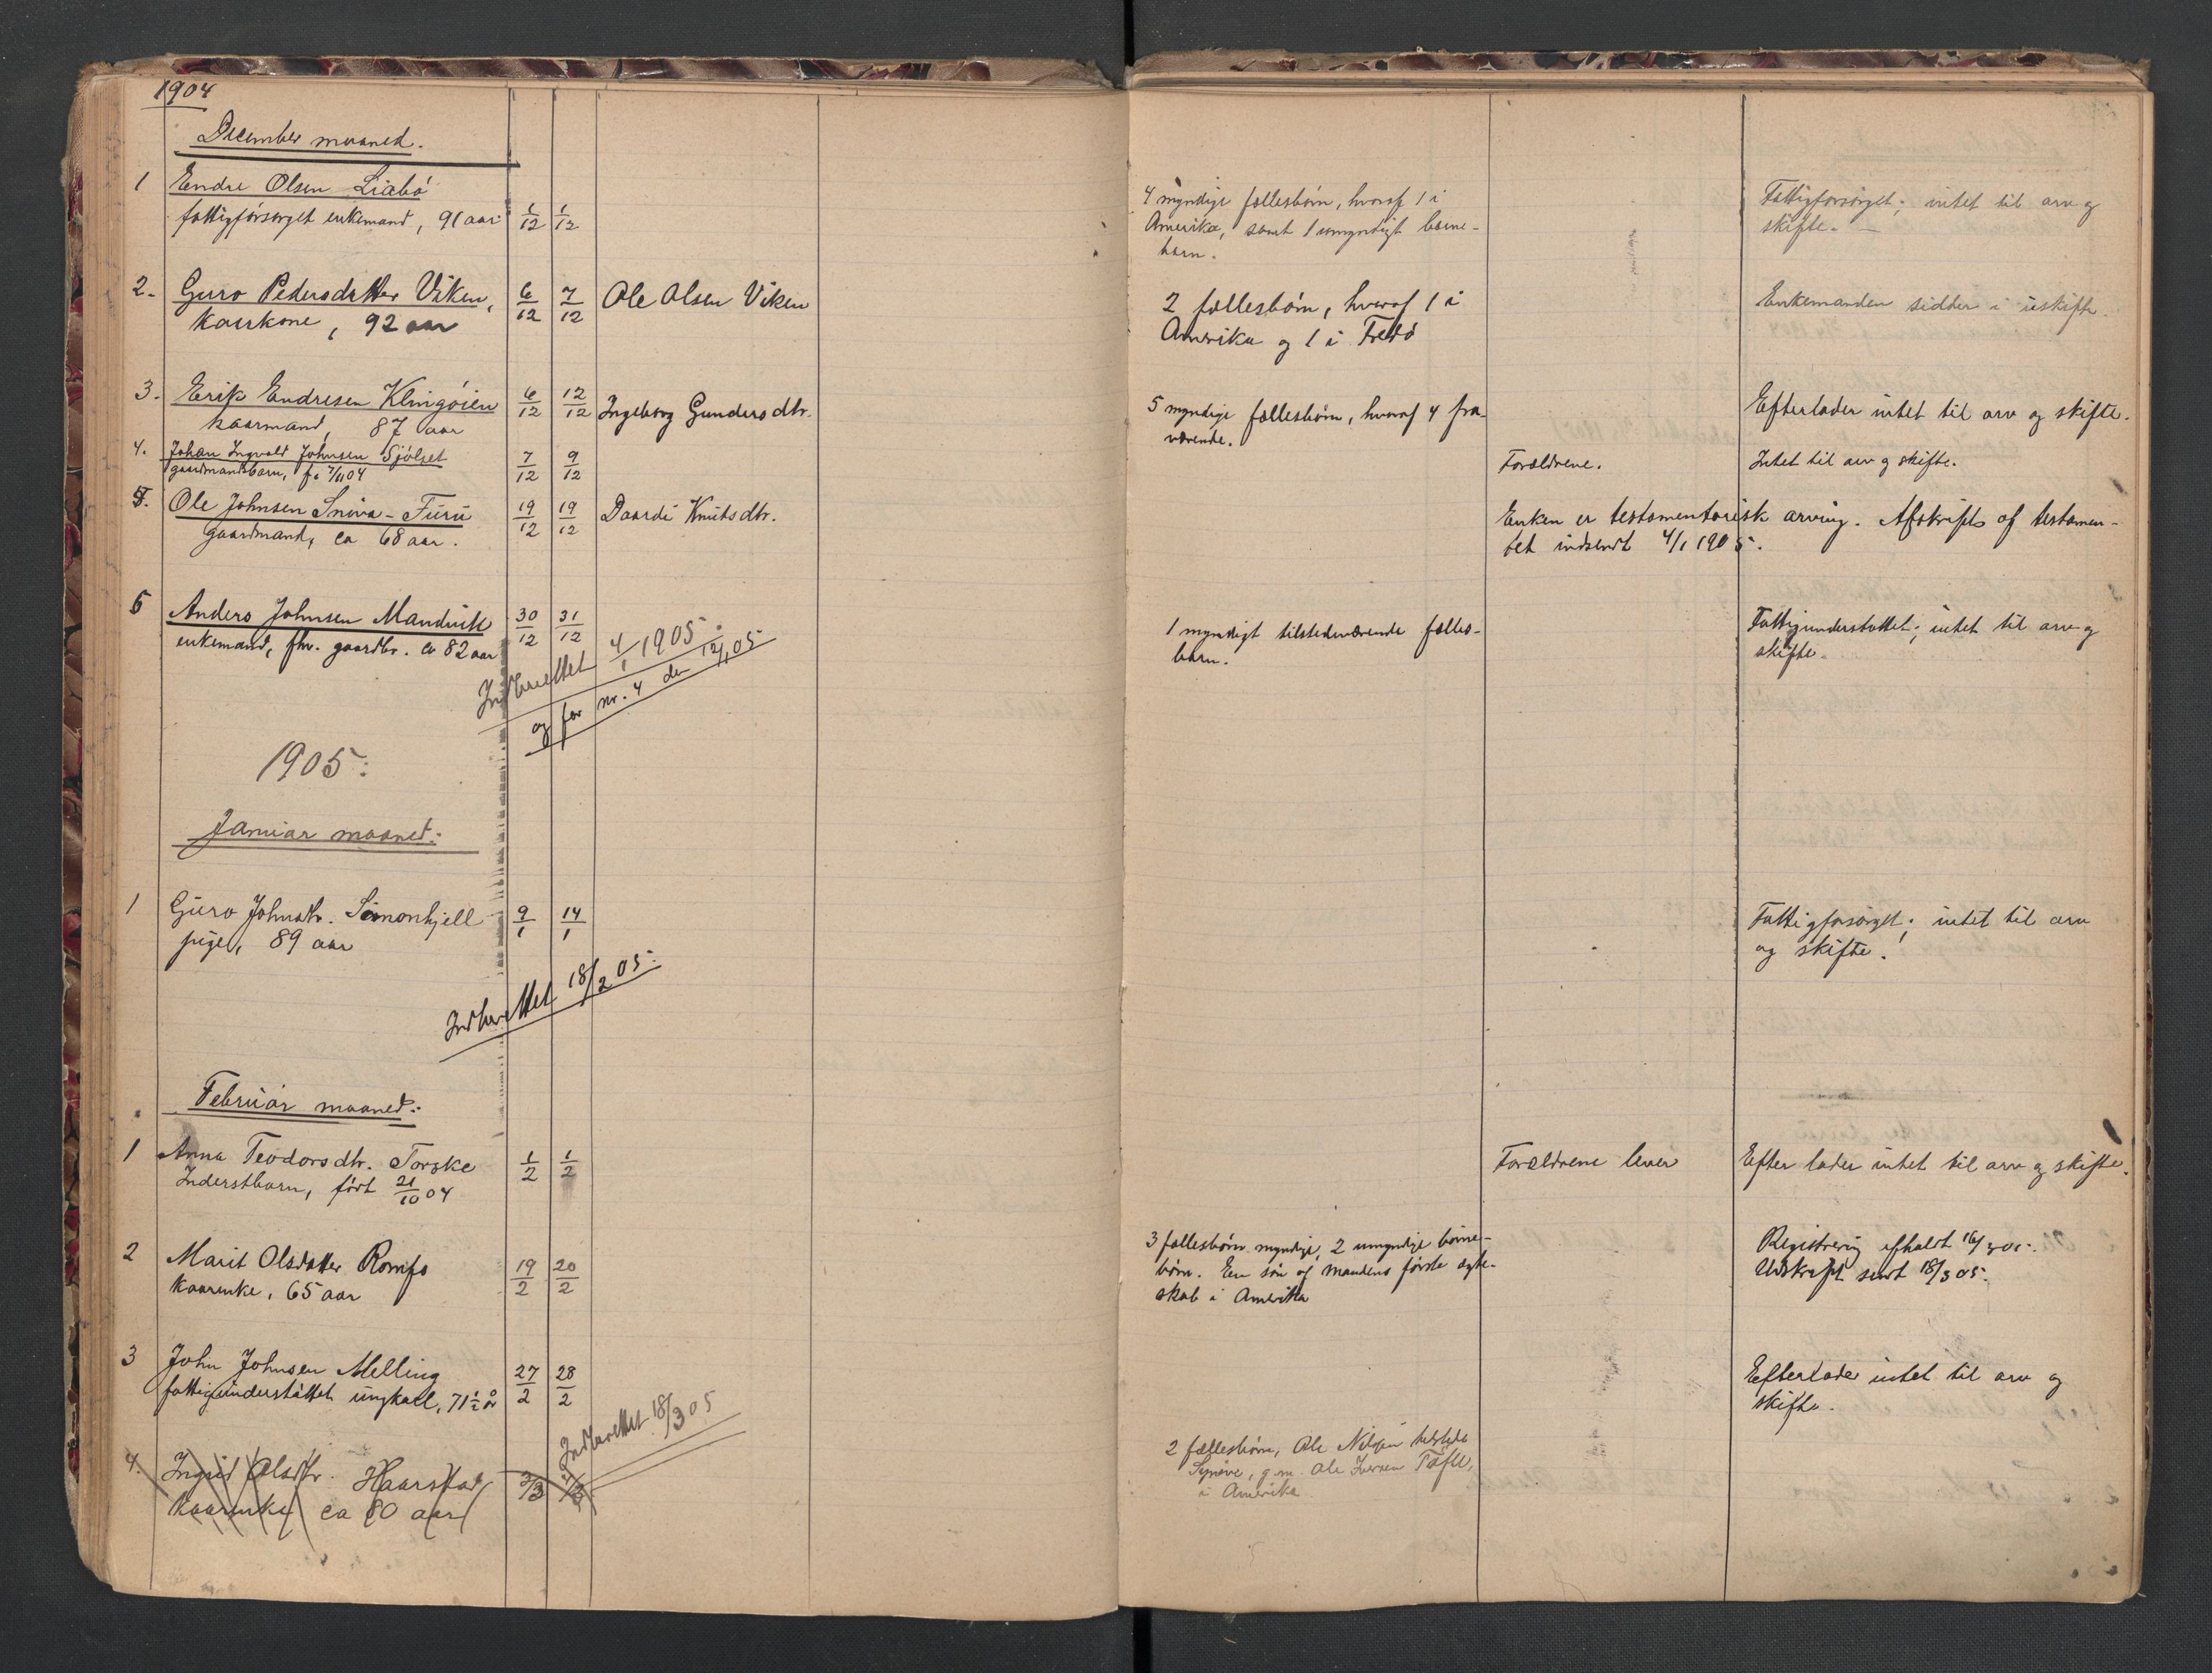 1904
December maaned.
1 Endre Olsen Liabø
fattigforsørget enkemand, 91 aar 1/12 1/12
4 myndige fællesbørn, hvoraf 1 i
Amerika, samt 1 umyndigt barne-
barn.
Fattigforsørget; intet til arv og
skifte.
2. Guro Pedersdatter Viken,
kaarkone, 92 aar 6/12 7/12 Ole Olsen Viken
2 fællesbørn, hvoraf 1 i
Amerika og 1 i Fredø
Enkemanden sidder i uskifte.
3. Erik Endresen Klingøien
kaarmand, 87 aar 6/12 12/12 Ingeborg Gundersdtr.
5 myndige fællesbørn, hvoraf 4 fra-
værende.
Efterlader intet til arv og skifte.
4. Johan Ingvald Johnsen Sjølset
gaardmandsbarn, f. 7/11 04 7/12 9/12
Forældrene.
Intet til arv og skifte.
5. Ole Johnsen Snøva-Furu
gaardmand, ca 68 aar. 19/12 19/12 Daardi Knutsdtr.
Enken er testamentarisk arving. Afskrift af testamen-
tet indsendt 4/1 1905.
6 Anders Johnsen Mandvik
enkemand, fhv. gaardbr. ca 82 aar 30/12 31/12
1 myndigt tilstedeværende fælles-
barn.
Fattigunderstøttet; intet til arv og
skifte.
Indberettet 4/1 1905.
og for nr. 4 den 12/1 05
1905:
Januar maaned:
1 Guro Johnsdtr. Simonhjell
pige, 89 aar 9/1 14/1
Fattigforsørget; intet til arv
og skifte.
Indberettet 18/2 05.
Februar maaned:
1 Anna Teodorsdtr. Torske
Inderstbarn, født 21/10 04 1/2 1/2
Forældrene lever
Efterlader intet til arv og skifte.
2 Marit Olsdatter Romfo
kaarenke, 65 aar 19/2 20/2
3 fællesbørn myndige, 2 umyndige børne-
børn. En søn af mandens første ægte-
skab i Amerika
Registrering afholdt 16/3 05.
Udskrift sendt 18/3 05.
3 John Johnsen Melling
fattigunderstøttet ungkarl, 71 1/2 år 27/2 28/2
Efterlader intet til arv og
skifte.
Indberettet 18/3 05
4. Ingrid Olsdtr. Haarstad
kaarenke ca 80 aar 3/3 4/3
2 fællesbørn, Ole Nilsen tilstede
Synøve, g.m. Ole Iversen Tøfte,
i Amerika